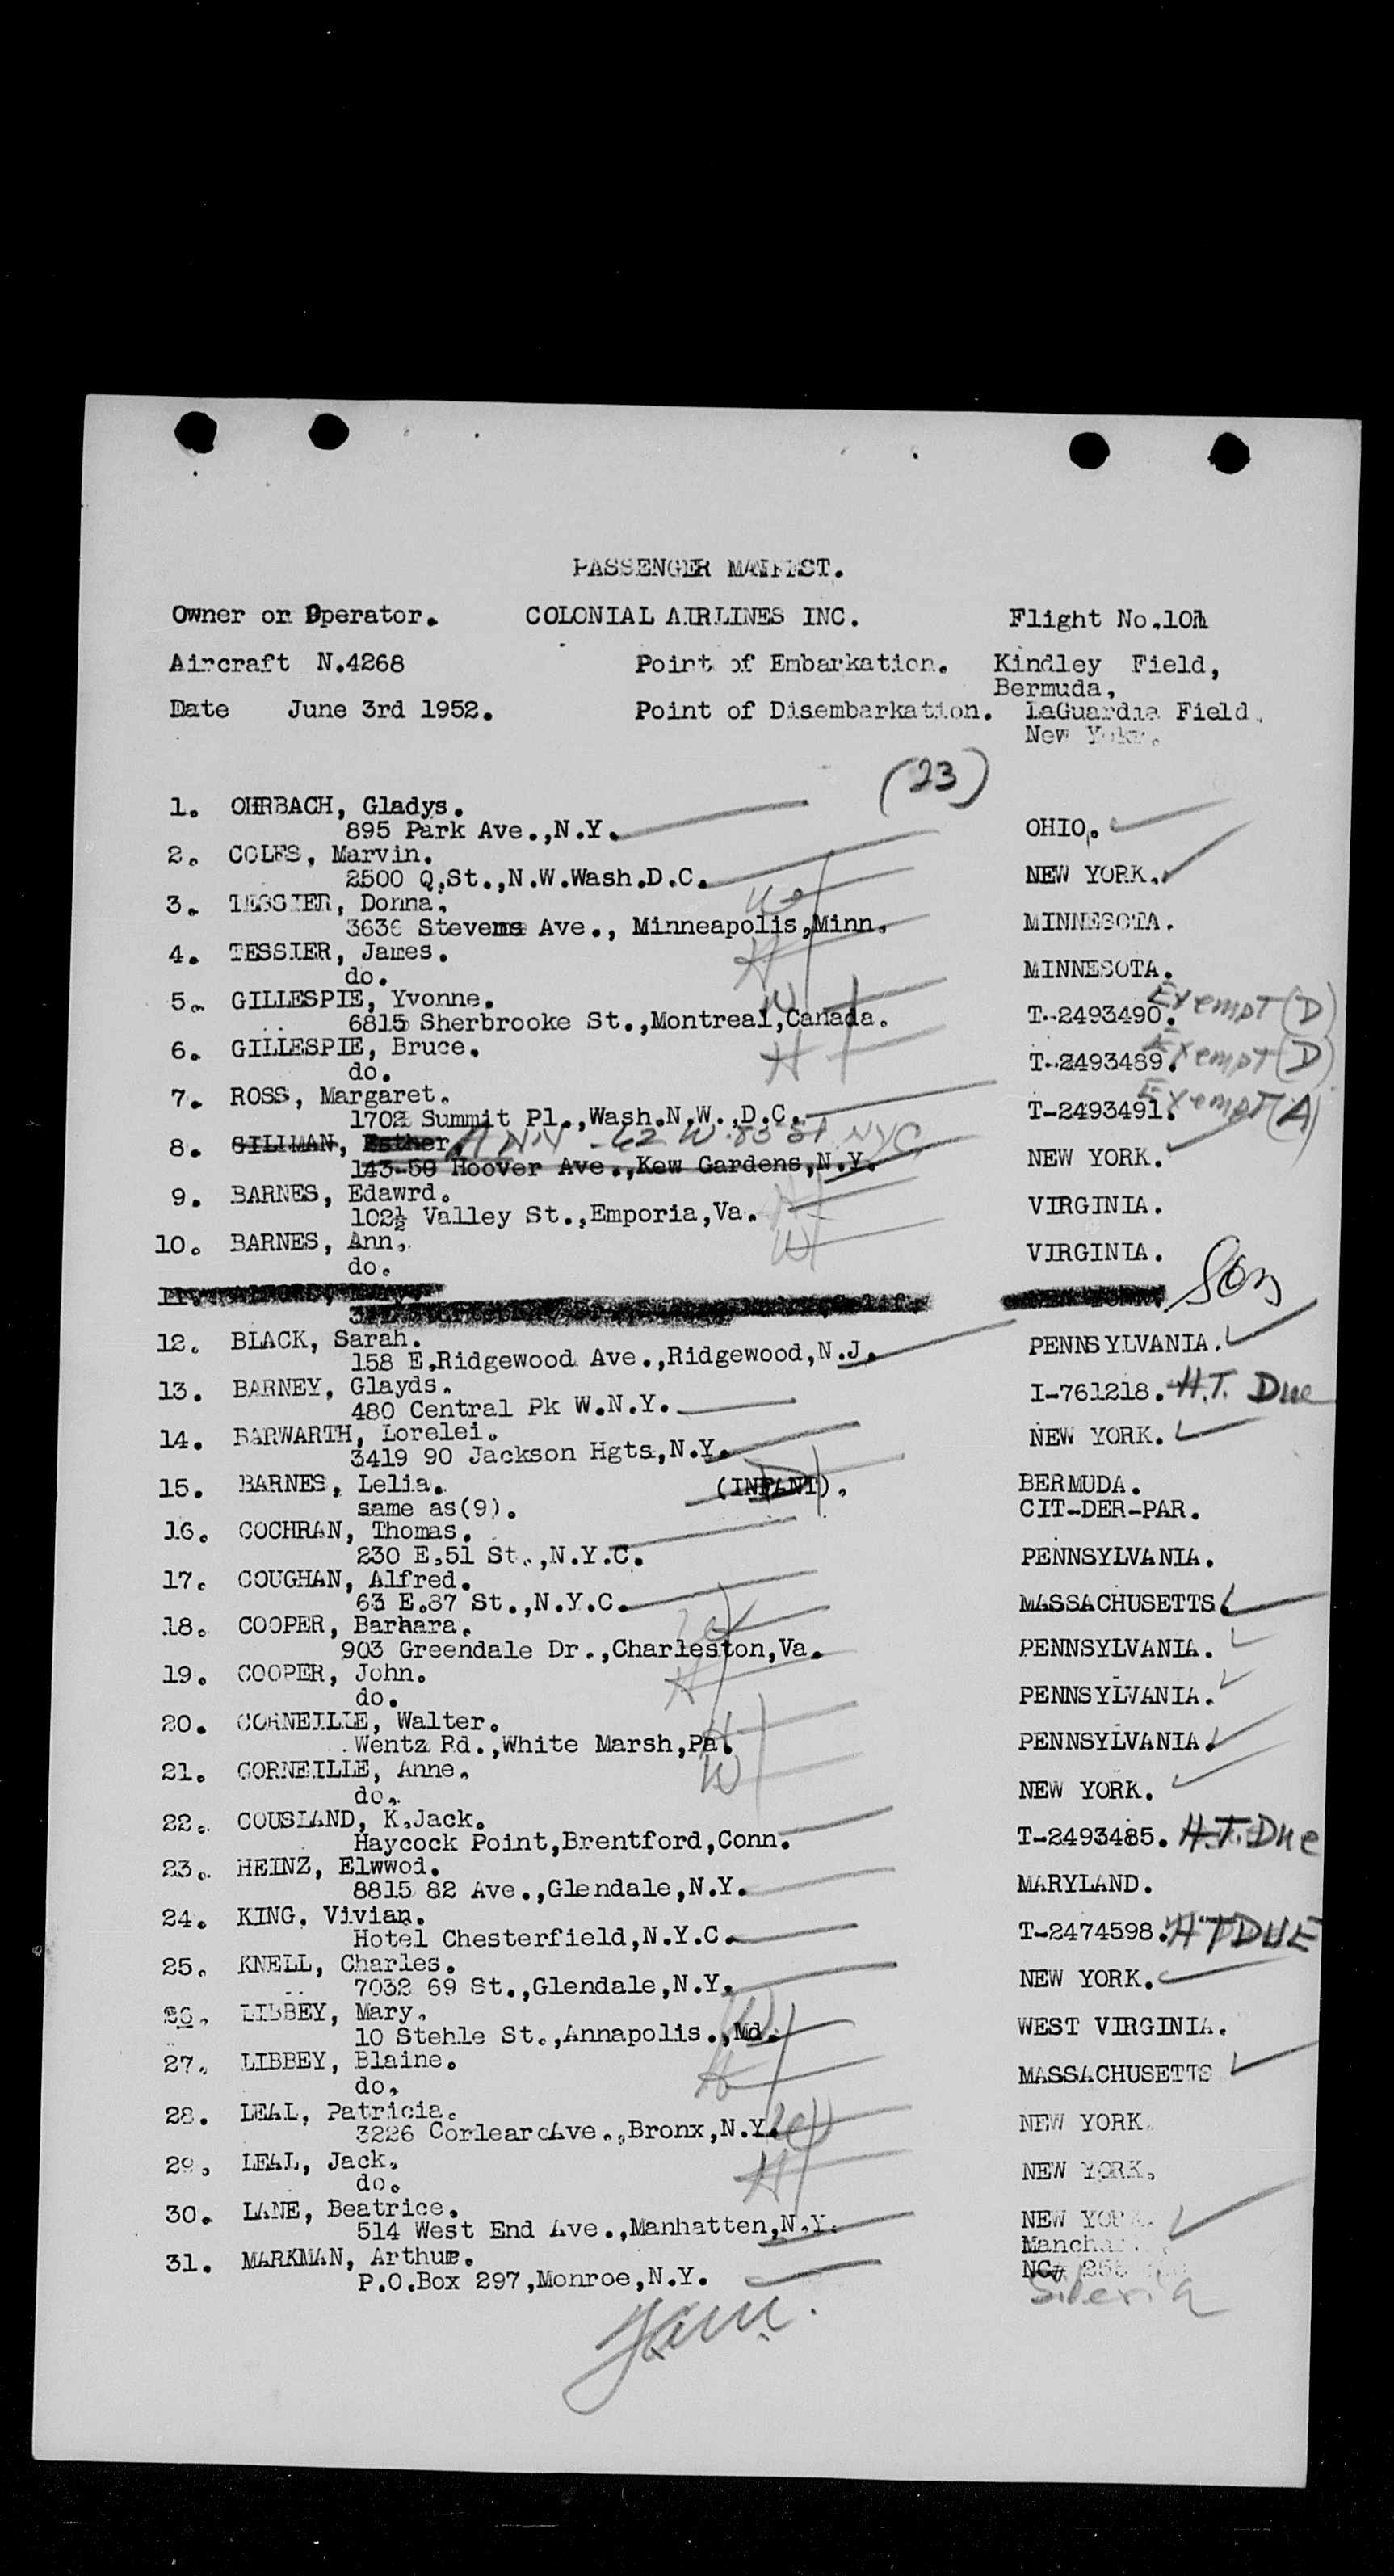 PASSENGER MANIFEST.
Owner or Operator. COLONIAL AIRLINES INC. Flight No.101
Aircraft N.4268 Point of Embarkation. Kindley Field,
Bermuda,
Date June 3rd 1952. Point of Disembarkation. LaGuardia Field,
New
(23)
1. OHRBACH, Gladys.
895 Park Ave.,N.Y. OHIO.
2. COLES, Marvin.
2500 Q,St.,N.W.Wash.D.C. NEW YORK.
3. TESSIER, Donna.
3636 Stevens Ave., Minneapolis,Minn. MINNESOTA.
4. TESSIER, James. H
do. MINNESOTA.
5. GILLESPIE, Yvonne. W
6815 Sherbrooke St.,Montreal,Canada. T-2493490. Exempt (D)
6. GILLESPIE, Bruce. H
do. T-2493489. Exempt (D)
7. ROSS, Margaret.
1702 Summit Pl.,Wash.N.W.,D.C. T-2493491. Exempt (A)
8. GILLMAN, Esther. ANN -62 W. 83 St NYC
143-50 Hoover Ave.,Kew Gardens,N.Y. NEW YORK.
9. BARNES, Edawrd. H
102½ Valley St.,Emporia,Va. VIRGINIA.
10. BARNES, Ann. W
do. VIRGINIA.
11.
12. BLACK, Sarah.
158 E.Ridgewood Ave.,Ridgewood,N.J. PENNSYLVANIA.
13. BARNEY, Glayds.
480 Central Pk W.N.Y. I-761218. H.T. Due
14. BARWARTH, Lorelei.
3419 90 Jackson Hgts,N.Y. NEW YORK.
15. BARNES, Lelia. (INFANT). BERMUDA.
same as(9). CIT-DER-PAR.
16. COCHRAN, Thomas.
230 E.51 St.,N.Y.C. PENNSYLVANIA.
17. COUGHAN, Alfred.
63 E.87 St.,N.Y.C. MASSACHUSETTS
18. COOPER, Barhara.
903 Greendale Dr.,Charleston,Va. PENNSYLVANIA.
19. COOPER, John. H
do. PENNSYLVANIA.
20. CORNEILLE, Walter. H
Wentz Rd.,White Marsh,Pa. PENNSYLVANIA.
21. CORNEILLE, Anne. W
do. NEW YORK.
22. COUSLAND, K.Jack.
Haycock Point,Brentford,Conn. T-2493485. H.T. Due
23. HEINZ, Elwwod.
8815 82 Ave.,Glendale,N.Y. MARYLAND.
24. KING. Vivian.
Hotel Chesterfield,N.Y.C. T-2474598. HT DUE
25. KNELL, Charles.
7032 69 St.,Glendale,N.Y. NEW YORK.
26. LIBBEY, Mary. W
10 Stehle St.,Annapolis.,Md. WEST VIRGINIA.
27. LIBBEY, Blaine. H
do. MASSACHUSETTS
28. LEAL, Patricia.
3226 Corlear Ave.,Bronx,N.Y. NEW YORK.
29. LEAL, Jack. H
do. NEW YORK.
30. LANE, Beatrice.
514 West End Ave.,Manhatten,N.Y. NEW YORK.
31. MARKMAN, Arthur.
P.O.Box 297,Monroe,N.Y.
Siberia